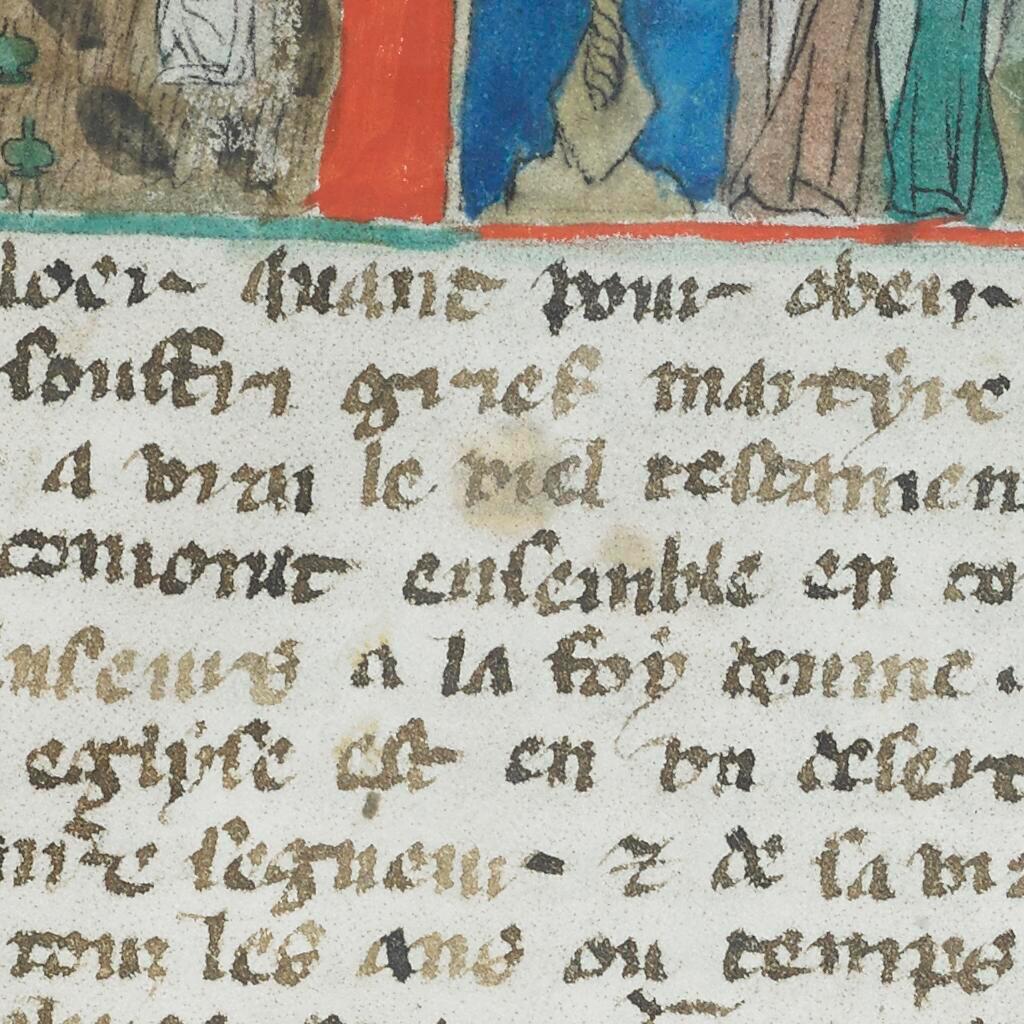 loer quant pour obeir
souffrir grief martyre
a vrai le viel testamen
comont ensemble en co
nseurs a la foy
eglyse est en un desert
seigneur ⁊ de la
tous les ans ou temps